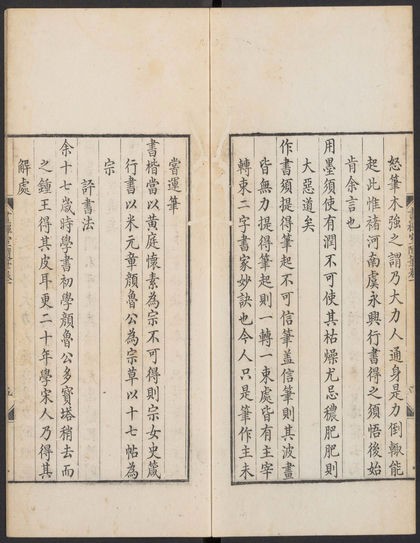 怒筆木強之謂乃大力人通身是力倒輙能
起此惟褚河南虞永興行書得之須悟後始
肯余言也
用墨須使有潤不可使其枯燥尤忌穠肥肥則
大惡道矣
作書須提得筆起不可信筆盖信筆則其波畫
皆無力提得筆起則一轉一束處皆有主宰
轉束二字書家妙訣也今人只是筆作主未
嘗運筆
書楷當以黄庭懷素為宗不可得則宗女史箴
行書以米元章顏魯公為宗草以十七帖為
宗
評書法
余十七歲時學書初學顏魯公多寶塔稍去而
之鍾王得其皮耳更二十年學宋人乃得其
解處